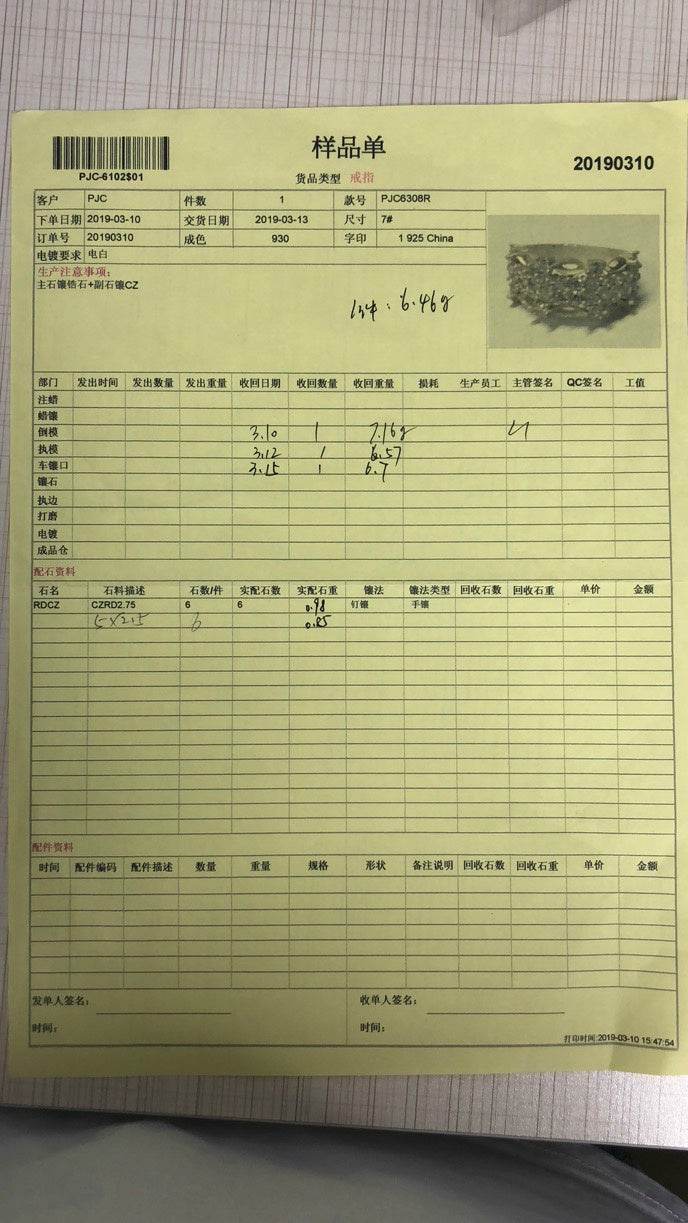 样品单
PJC-6102$01
货品类型 戒指
20190310
客户 PJC 件数 1 款号 PJC6308R
下单日期 2019-03-10 交货日期 2019-03-13 尺寸 7#
订单号 20190310 成色 930 字印 1 925 China
电镀要求 电白
生产注意事项:
主石镶锆石+副石镶CZ
1件: 6.46g
部门 发出时间 发出数量 发出重量 收回日期 收回数量 收回重量 损耗 生产员工 主管签名 QC签名 工值
注蜡
蜡镶
倒模 3.10 1 7.16g
执模 3.12 1 6.57
车镶口 3.15 1 6.7
镶石
执边
打磨
电镀
成品仓
配石资料
石名 石料描述 石数/件 实配石数 实配石重 镶法 镶法类型 回收石数 回收石重 单价 金额
RDCZ CZRD2.75 6 6 0.98 钉镶 手镶
5×2.5 6 0.85
配件资料
时间 配件编码 配件描述 数量 重量 规格 形状 备注说明 回收石数 回收石重 单价 金额
发单人签名: 收单人签名:
时间: 时间:
打印时间:2019-03-10 15:47:54